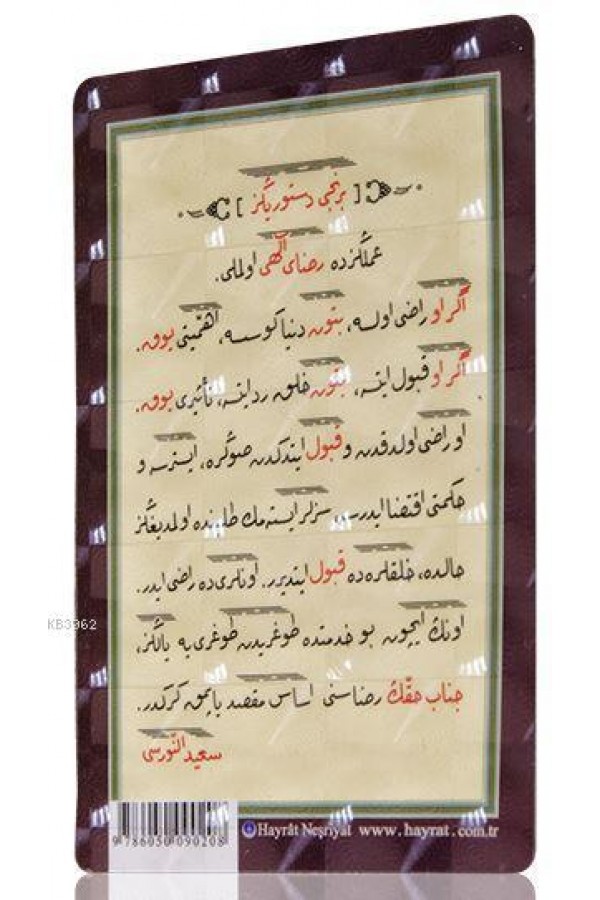 [ برنجی دستوریكز ]
عملكزده رضای الٓهی اولملی.
اگر او راضی اولسه، بتون دنیا كوسسه، اهمّیتی یوق.
اگر او قبول ایتسه، بتون خلق رد ایتسه، تأثیری یوق.
او راضی اولدقدن و قبول ایتدكدن صوڭره، ایسترسه و
حكمتی اقتضا ایدرسه، سزلر ایسته مك طلبنده اولمدیغڭز
حالده، خلقلره ده قبول ایتدیرر. اونلری ده راضی ایدر.
اونڭ ایچون بو خدمتده طوغریدن طوغری یه یالڭز،
جناب حقّڭ رضاسنی اساس مقصد یاپمق كركدر.
سعید النّورسی
KB3962
9 786050 090208
Hayrât Neşriyat www.hayrat.com.tr